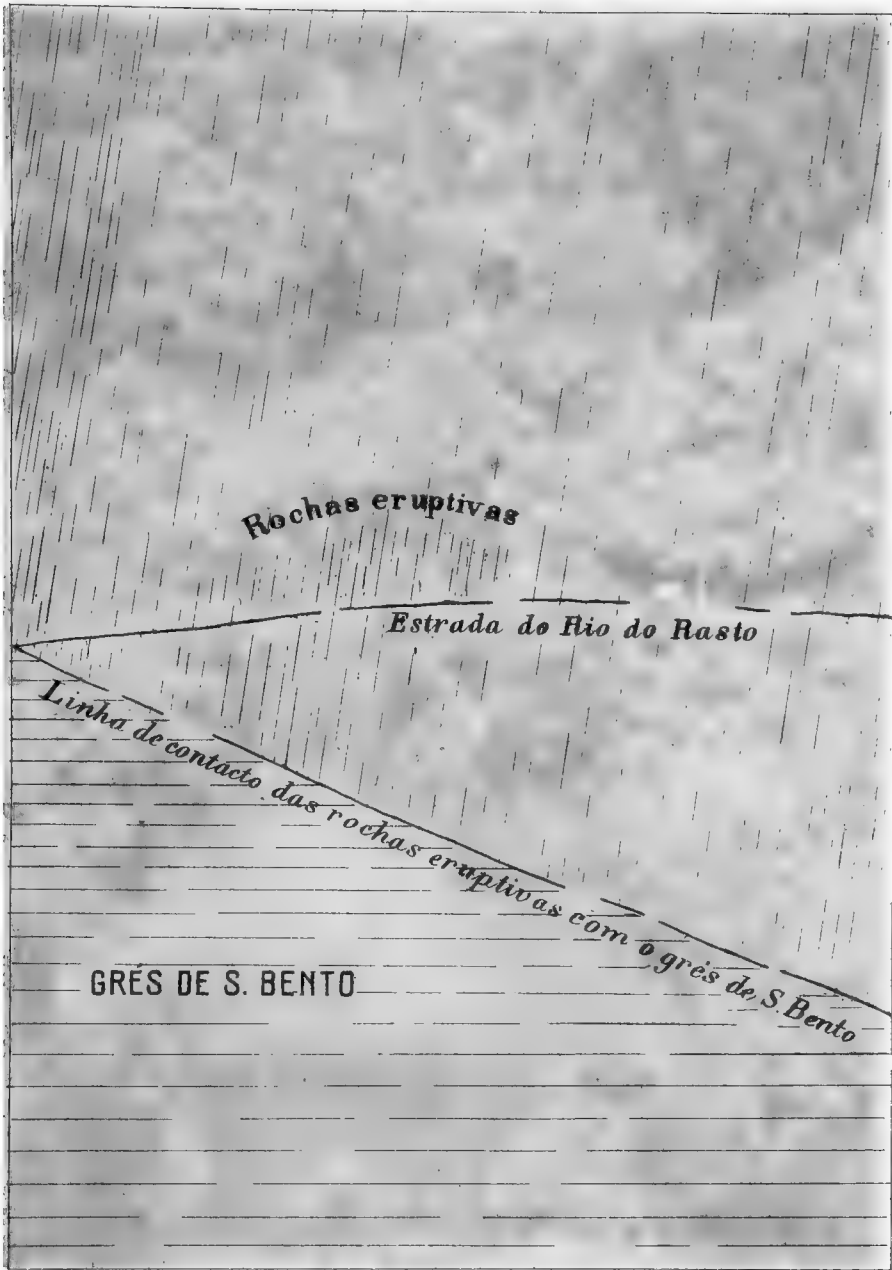 Rochas eruptivas
Estrada do Rio do Rasto
Linha de contacto das rochas eruptivas com o grés de S. Bento
GRÉS DE S. BENTO